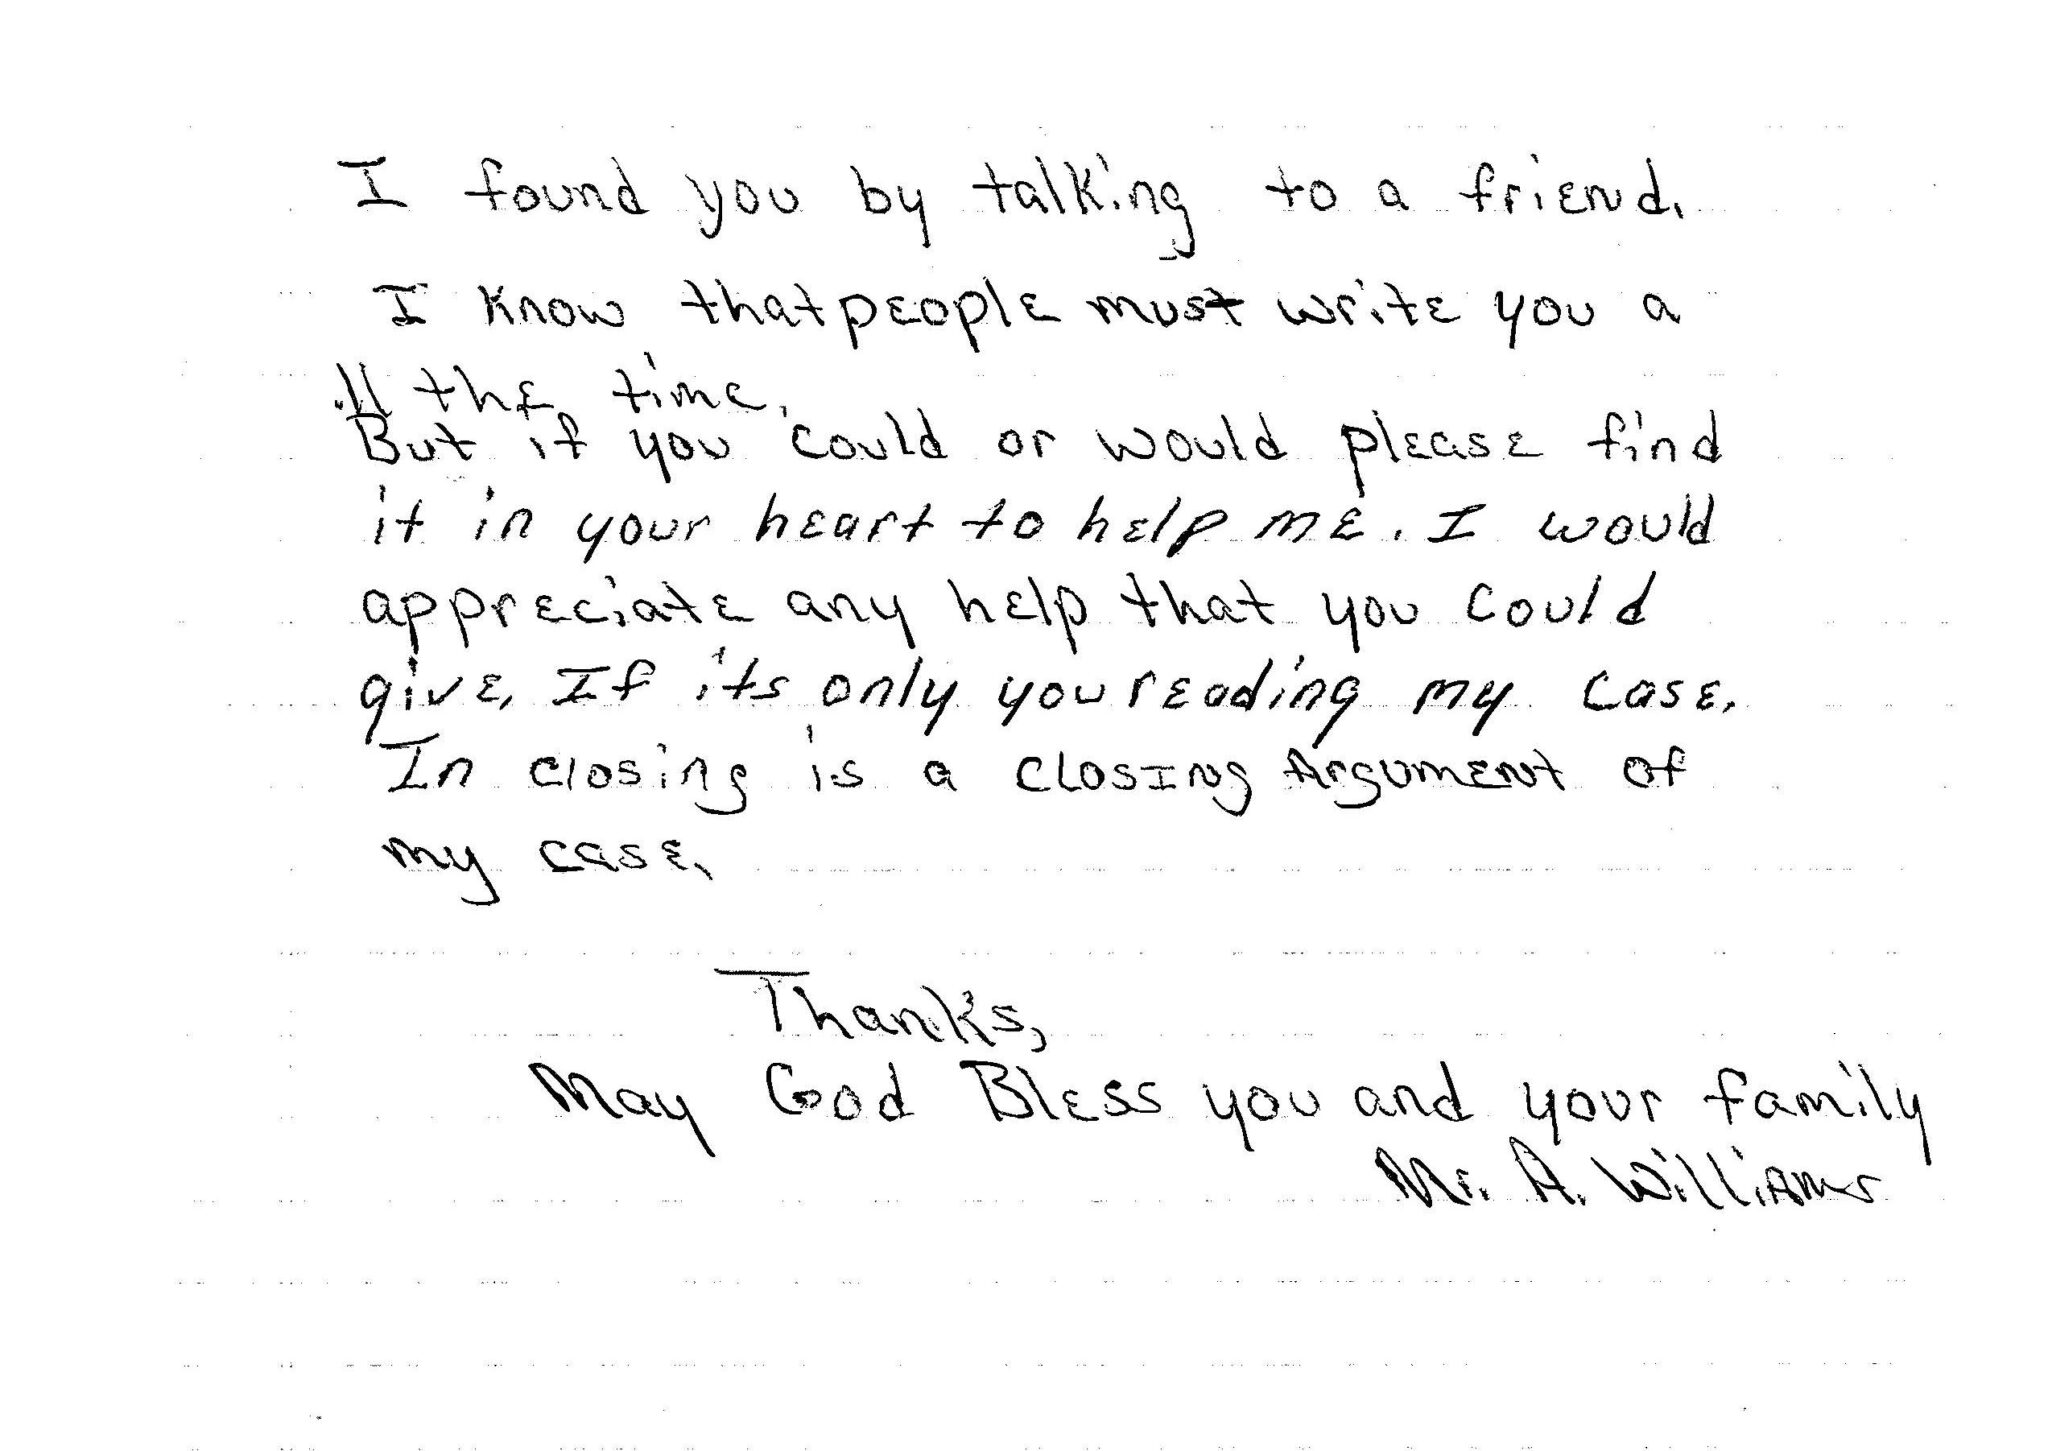 I found you by talking to a friend.
I know that people must write you a
ll the time.
But if you could or would please find
it in your heart to help me. I would
appreciate any help that you could
give. If it's only you reading my case.
In closing is a closing Argument of
my case.
Thanks,
May God Bless you and your family
Mr. A. Williams